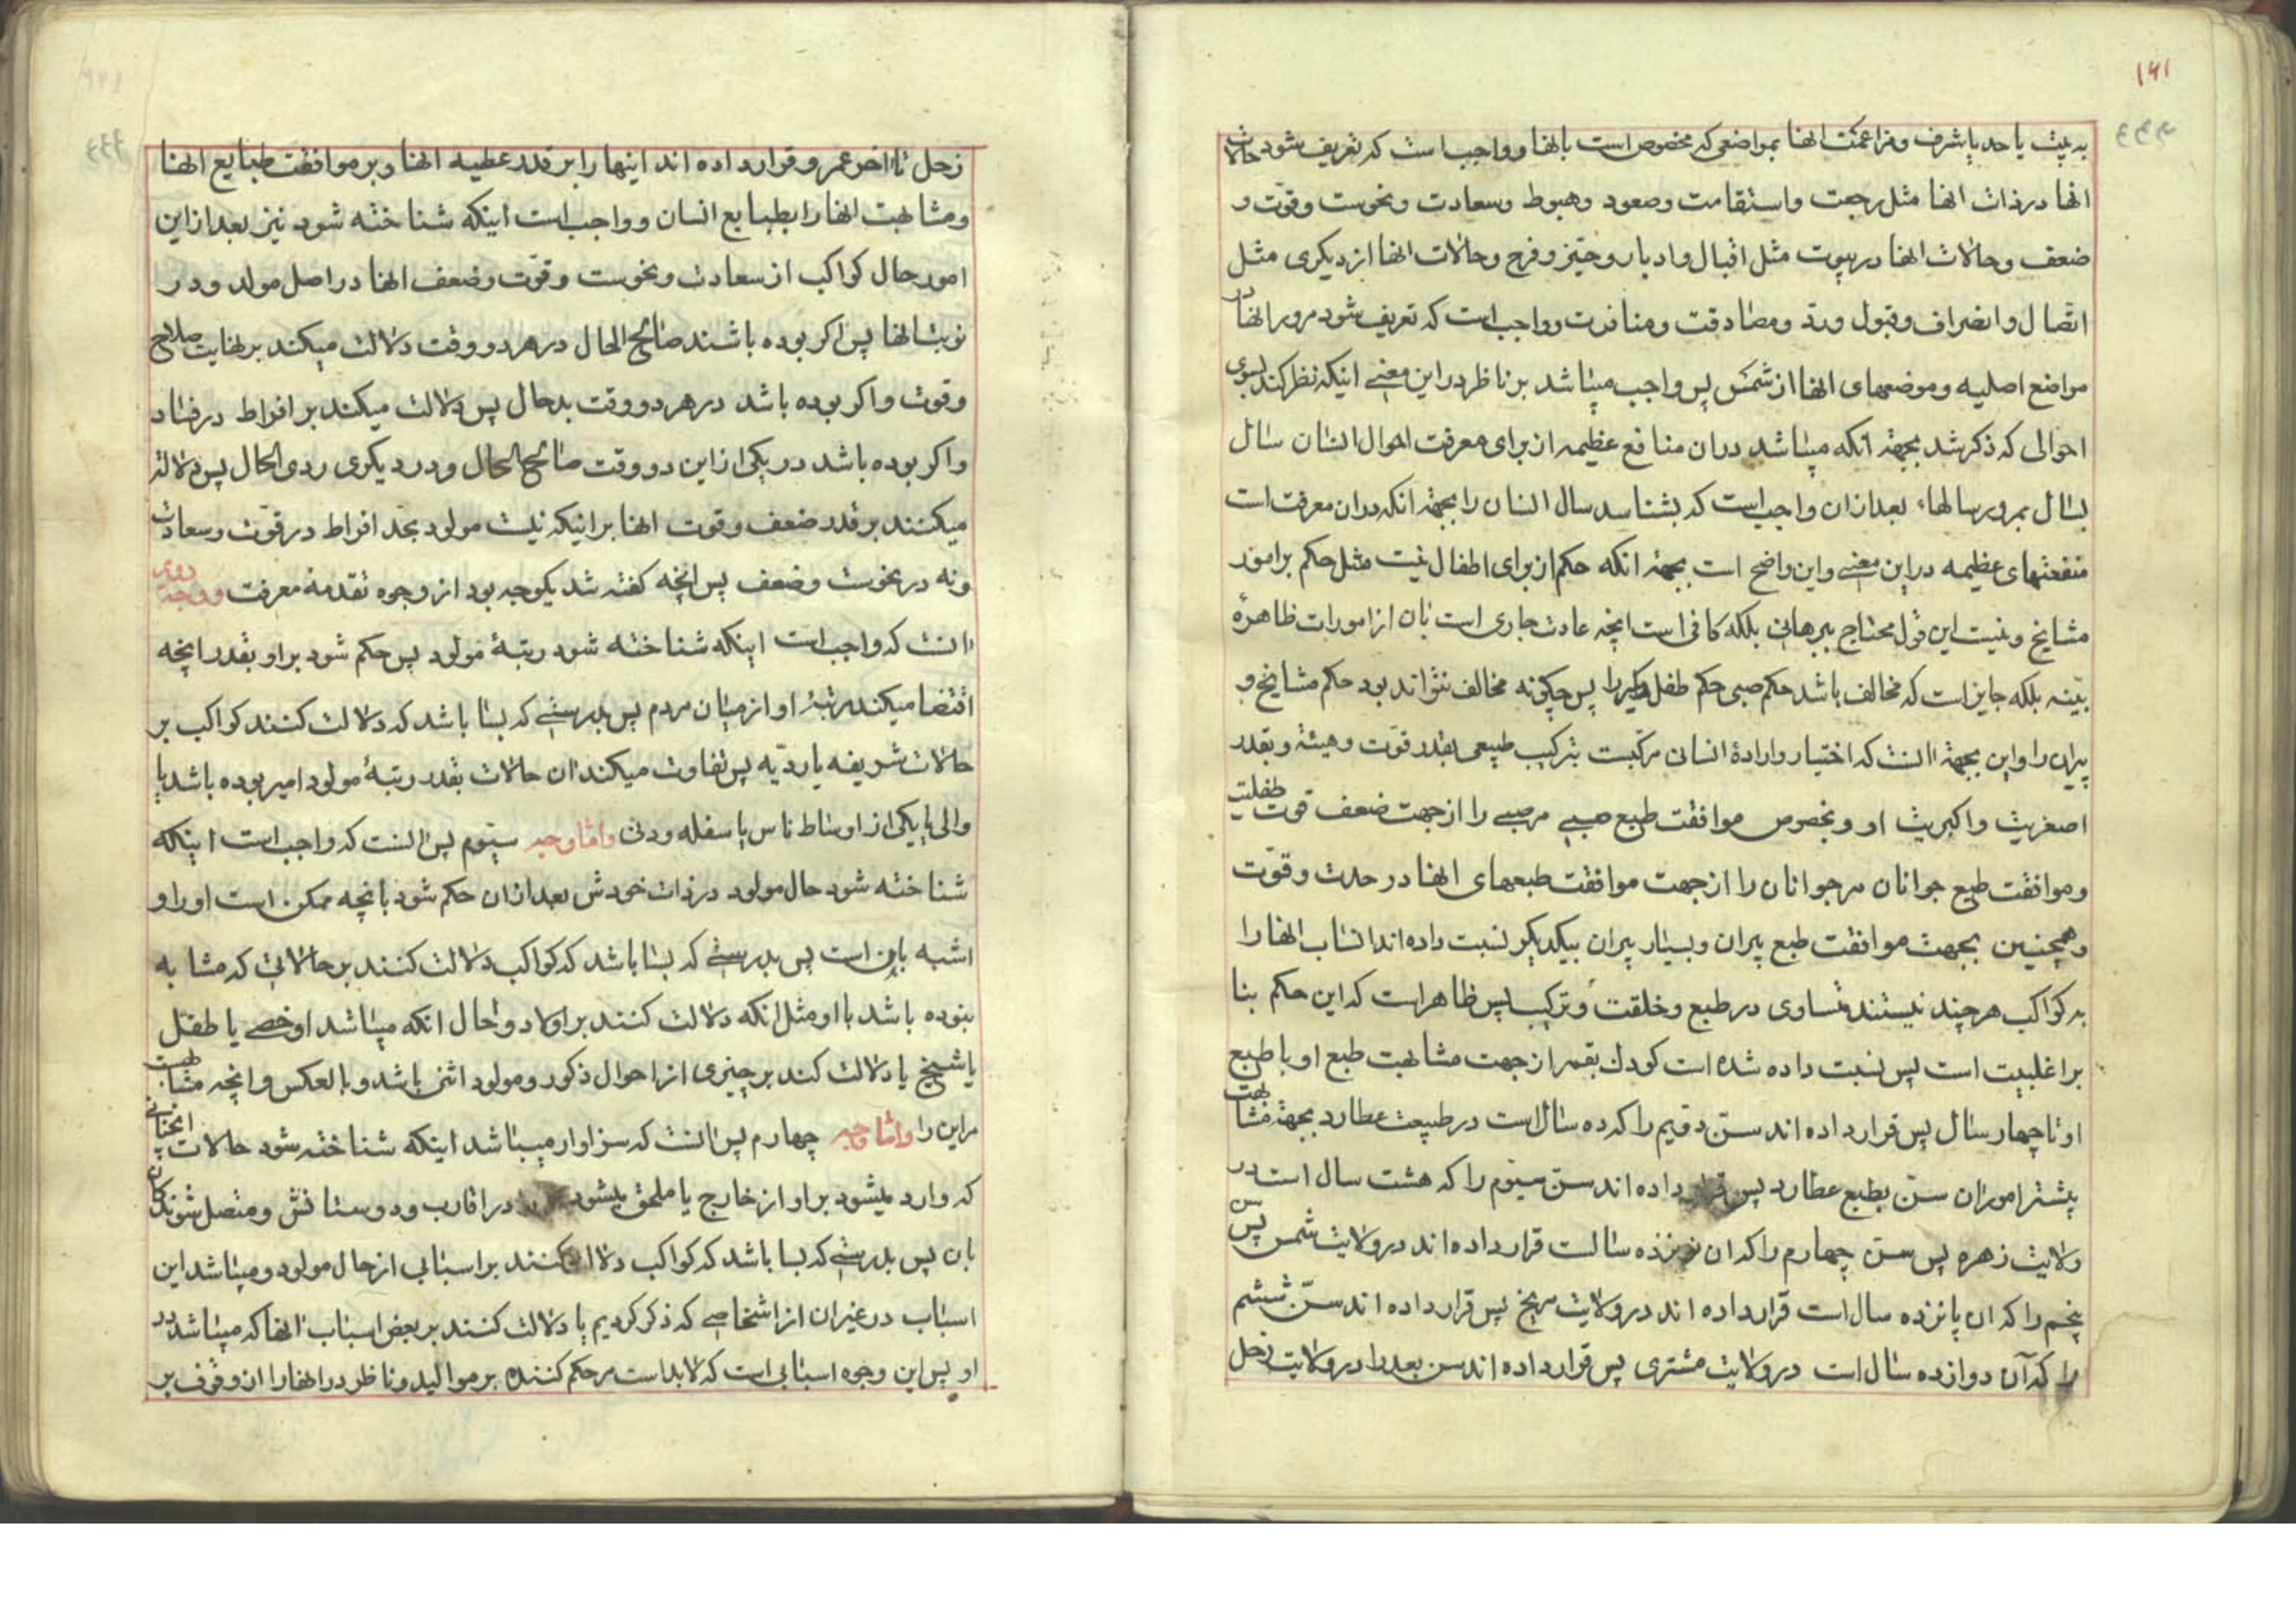 ۱۴۱
به بیت یا حد یا شرف و مزاعمت انها بمواضعی که مخصوص است بانها و واجب است که تعریف شود حالات
انها در ذات انها مثل رجعت و استقامت و صعود و هبوط و سعادت و نحوست و قوت و
ضعف و حالات انها در بیوت مثل اقبال و ادبار و حیّز و فرح و حالات انها از دیکری مثل
اتصال و انصراف و قبول و رد و مصادقت و منافرت و واجب است که تعریف شود مرور انها در
مواضع اصلیه و موضعهای انها از شمس پس واجب میباشد بر ناظر در این معنی اینکه نظر کند بسوی
احوالی که ذکر شد بجهة انکه میباشد دران منافع عظیمه از برای معرفت احوال انسان سال
بسال بمرور سالها، بعد ازان واجب است که بشناسد سال انسان را بجهة انکه دران معرفت است
منفعتهای عظیمه در این معنی و این واضح است بجهة انکه حکم از برای اطفال نیست مثل حکم بر امور
مشایخ و نیست این قول محتاج ببرهان بلکه کافی است انچه عادت جاری است بان از امورات ظاهرهٔ
بیّنه بلکه جایز است که مخالف باشد حکم صبی حکم طفل را پس چکونه مخالف نتواند بود حکم مشایخ و
پیران را و این بجهة انست که اختیار و ارادهٔ انسانی مرکبست بترکیب طبیعی بقدر قوّت و هیئة و بقدر
اصغریت و اکبریت او و بخصوص موافقت طبع صبی مر صبی را از جهت ضعف قوت طفلیت
و موافقت طبع جوانان مر جوانان را از جهت موافقت طبعهای انها در حدت و قوّت
و همچنین بجهت موافقت طبع پیران و بسیار پیران بیکدیکر نسبت داده اند انساب انها را
به کواکب هر چند نیستند متساوی در طبع و خلقت و ترکیب پس ظاهر است که این حکم بنا
بر اغلبیت است پس نسبت داده شده است کودك بقمر از جهت مشابهت طبع او با طبع
او تا چهار سال پس قرار داده اند سنّ دویم را که ده سال است در طبیعت عطارد بجهة مشابهت
بیشتر امور ان سنّ بطبع عطارد پس قرار داده اند سنّ سیّوم را که هشت سال است در
ولایت زهره پس سن چهارم را که ان نوزده سالست قرار داده اند در ولایت شمس پس سن
پنجم را که ان پانزده سال است قرار داده اند در ولایت مریخ پس قرار داده اند سنّ ششم
را که آن دوازده سال است در ولایت مشتری پس قرار داده اند سن بعد را در ولایت زحل
زحل تا اخر عمر و قرار داده اند اینها را بر قدر عطیه انها و بر موافقت طبایع انها
و مشابهت انها را بطبایع انسان و واجب است اینکه شناخته شود نیز بعد از این
امور حال کواکب از سعادت و نحوست و قوّت و ضعف انها در اصل مولد و در
نوبت انها پس اکر بوده باشند صالح الحال در هر دو وقت دلالت میکند بر نهایت صلاح
و قوت و اکر بوده باشد در هر دو وقت بدحال پس دلالت میکند بر افراط در فساد
و اکر بوده باشد در یکی از این دو وقت صالح الحال و در دیکری ردی الحال پس دلالة
میکنند بر قدر ضعف و قوت انها بر اینکه نیست مولود بحد افراط در قوّت و سعادت
و نه در نحوست و ضعف پس انچه کفته شد یکوجه بود از وجوه تقدمة معرفت و وجه دویم
انست که واجب است اینکه شناخته شود رتبهٔ مولود پس حکم شود بر او بقدر انچه
اقتضا میکند مرتبهٔ او از میان مردم پس بدرستی که بسا باشد که دلالت کنند کواکب بر
حالات شریفه یا ردیّه پس تفاوت میکند ان حالات بقدر رتبهٔ مولود امیر بوده باشد یا
والی یا یکی از اوساط ناس یا سفله و دنی و اما وجه سیّوم پس انست که واجب است اینکه
شناخته شود حال مولود در ذات خودش بعد ازان حکم شود بانچه ممکن است او را و
اشبه باین است پس بدرستی که بسا باشد که کواکب دلالت کنند بر حالاتی که مشابه
نبوده باشد با او مثل انکه دلالت کنند بر اولاد و حال انکه میباشد او خصی یا طفل
یا شیخ یا دلالت کند بر چیزی از احوال ذکور و مولود انثی باشد و بالعکس و انچه مشابهت
مر این را و اما وجه چهارم پس انست که سزاوار میباشد اینکه شناخته شود حالات انچنانی
که وارد میشود بر او از خارج یا ملحق میشود در اقارب و دوستانش و متصل شوندکان
بان پس بدرستی که بسا باشد که کواکب دلالت کنند بر اسبابی از حال مولود و میباشد این
اسباب در غیر ان از اشخاصی که ذکر کردیم یا دلالت کنند بر بعض اسباب انها که میباشد در
او پس این وجوه اسبابی است که لابد است مر حکم کننده بر موالید و ناظر در انها را ان وقوف بر